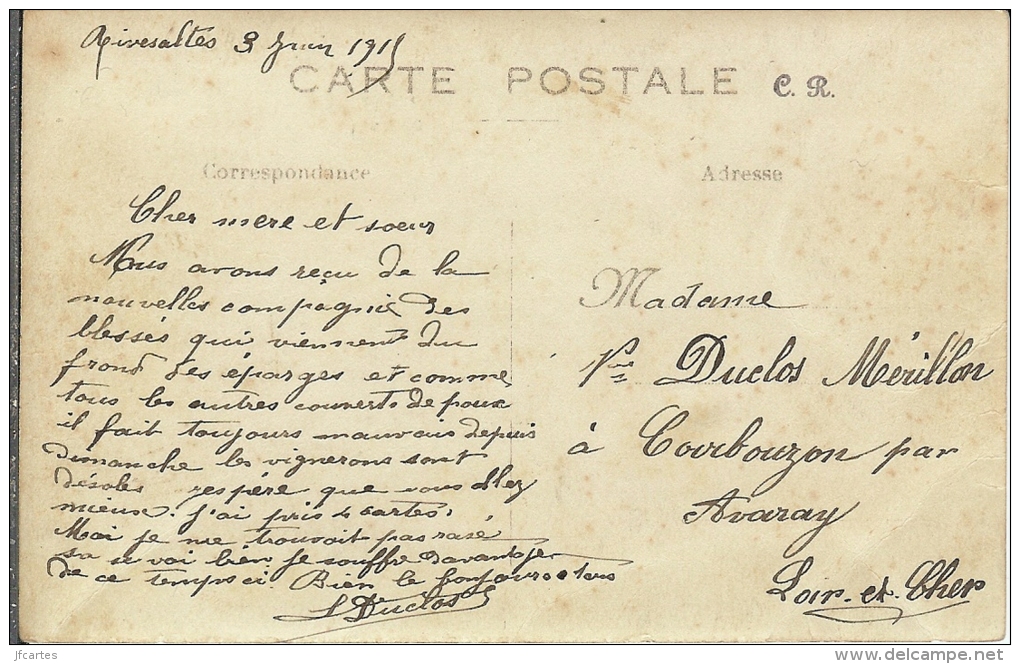 Rivesaltes 3 Juin 1915
CARTE POSTALE C. R.
Correspondance
Cher mere et soeur
Nous avons reçu de la
nouvelles compagnie des
blessés qui viennent du
frond des éparges et comme
tous les autres couverts de poux
il fait toujours mauvais depuis
dimanche les vignerons sont
désolés jespére que vous allez
mieux. J'ai pris 4 cartes.
Moi je me trouvait pas rasé
sa se voi bien je souffre davantage
de ce temps ci Bien le bonjour a tous
L Duclos
Adresse
Madame
Vve Duclos Mérillon
à Courbouzon par
Avaray
Loir-et-Cher
jfcartes
delcampe.net